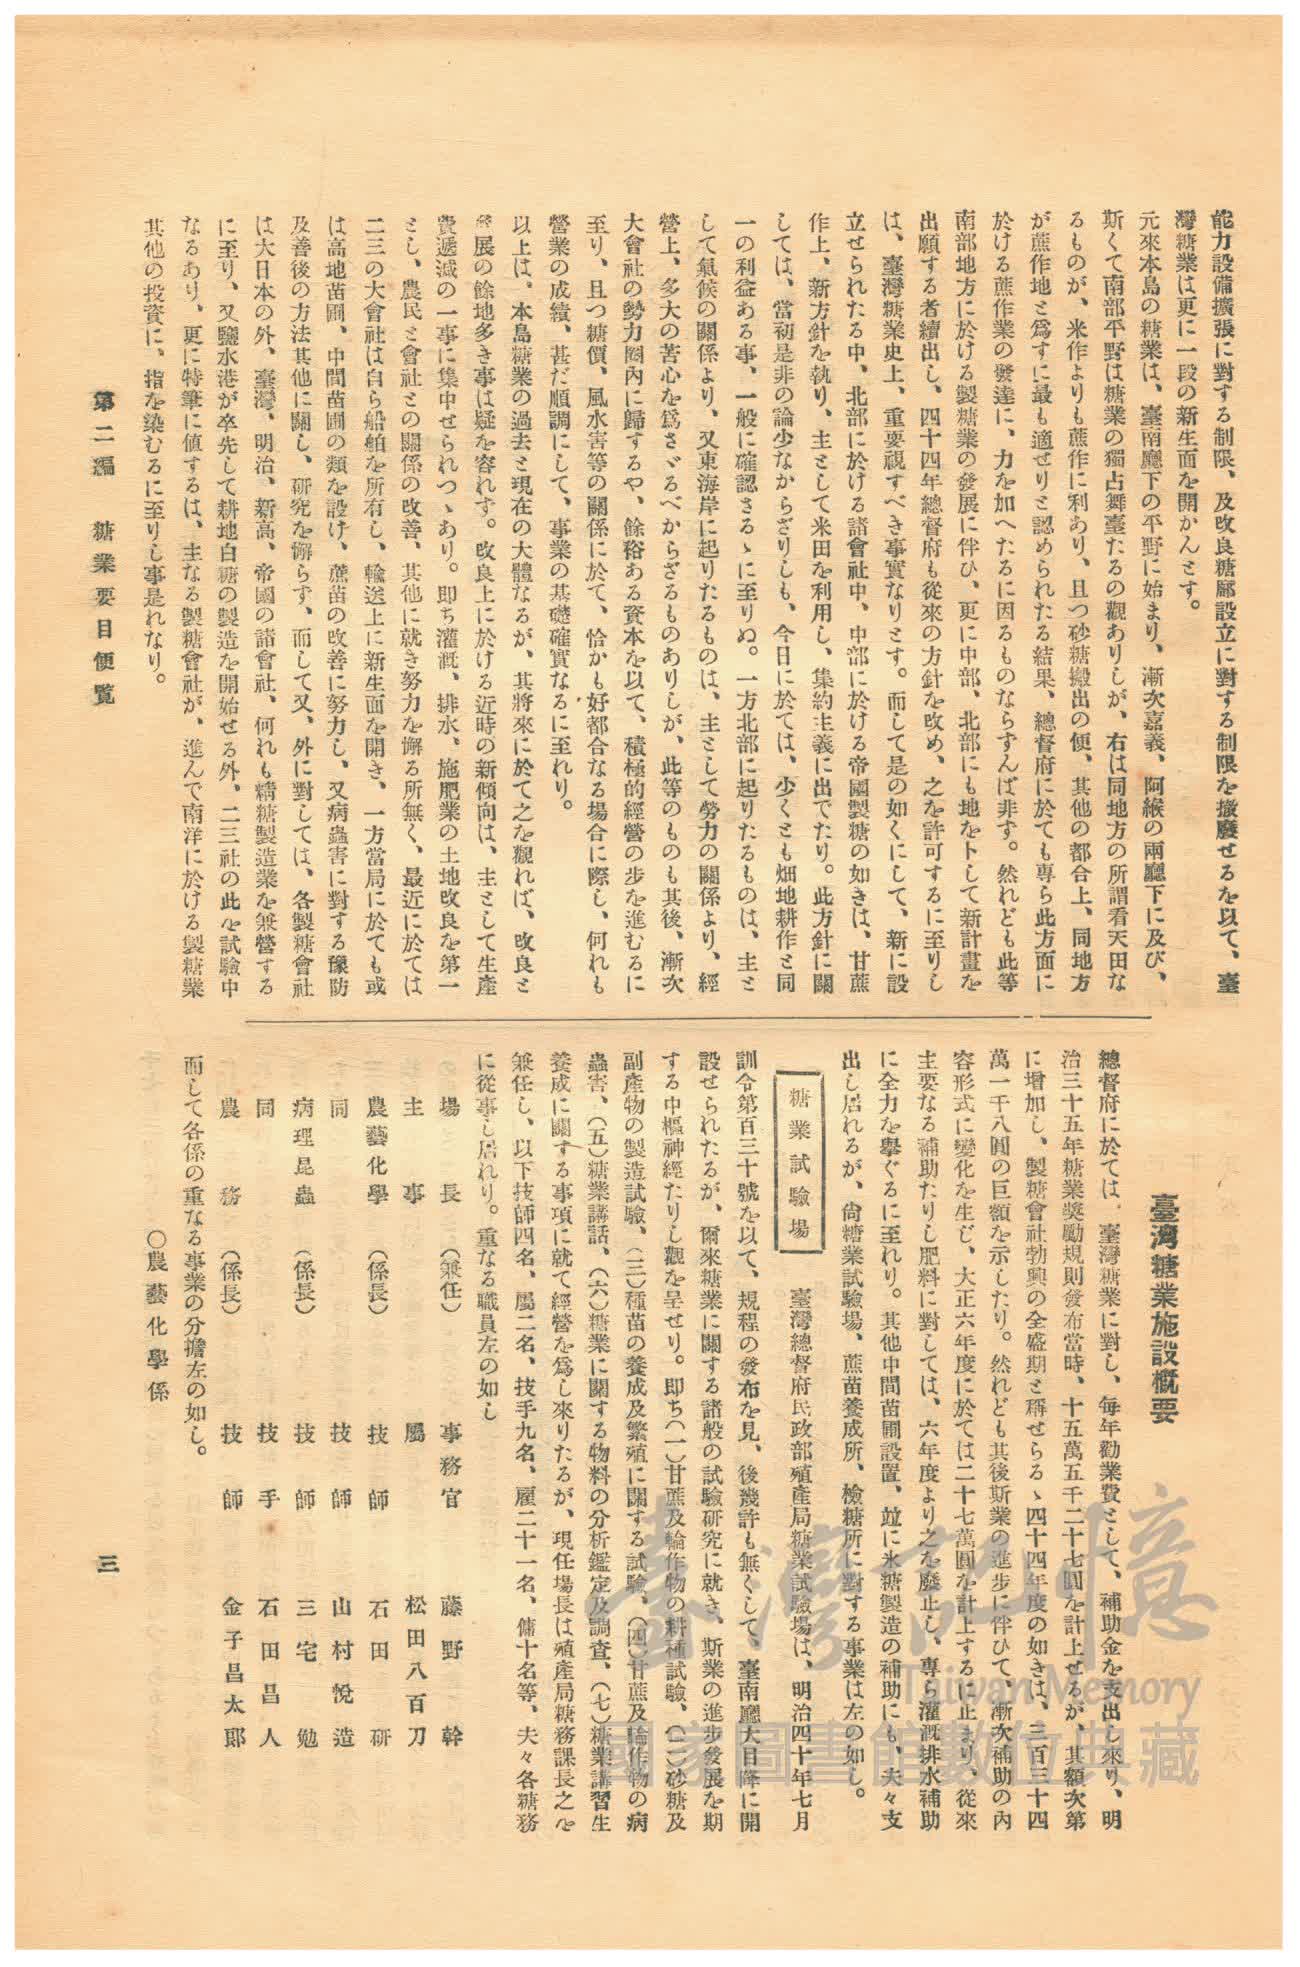 能力設備擴張に對する制限、及改良糖廍設立に對する制限を撤廢せるを以て、臺
灣糖業は更に一段の新生面を開かんとす。
元來本島の糖業は、臺南廳下の平野に始まり、漸次嘉義、阿緱の兩廳下に及び、
斯くて南部平野は糖業の獨占舞臺たるの觀ありしが、右は同地方の所謂看天田な
るものが、米作よりも蔗作に利あり、且つ砂糖搬出の便、其他の都合上、同地方
が蔗作地と爲すに最も適せりと認められたる結果、總督府に於ても專ら此方面に
於ける蔗作業の發達に、力を加へたるに因るものならずんば非ず。然れども此等
南部地方に於ける製糖業の發展に伴ひ、更に中部、北部にも地を卜して新計畫を
出願する者續出し、四十四年總督府も從來の方針を改め、之を許可するに至りし
は、臺灣糖業史上、重要視すべき事實なりとす。而して是の如くにして、新に設
立せられたる中、北部に於ける諸會社中、中部に於ける帝國製糖の如きは、甘蔗
作上、新方針を執り、主として米田を利用し、集約主義に出でたり。此方針に關
しては、當初是非の論少なからざりしも、今日に於ては、少くとも畑地耕作と同
一の利益ある事、一般に確認さるゝに至りぬ。一方北部に起りたるものは、主と
して氣候の關係より、又東海岸に起りたるものは、主として勞力の關係より、經
營上、多大の苦心を爲さゞるべからざるものありしが、此等のものも其後、漸次
大會社の勢力圈內に歸するや、餘裕ある資本を以て、積極的經營の步を進むるに
至り、且つ糖價、風水害等の關係に於て、恰かも好都合なる場合に際し、何れも
營業の成績、甚だ順調にして、事業の基礎確實なるに至れり。
以上は。本島糖業の過去と現在の大體なるが、其將來に於て之を觀れば、改良と
發展の餘地多き事は疑を容れず。改良上に於ける近時の新傾向は、主として生產
費遞減の一事に集中せられつゝあり。即ち灌漑、排水、施肥業の土地改良を第一
とし、農民と會社との關係の改善、其他に就き努力を懈る所無く、最近に於ては
二三の大會社は自ら船舶を所有し、輸送上に新生面を開き、一方當局に於ても或
は高地苗圃、中間苗圃の類を設け、蔗苗の改善に努力し、又病蟲害に對する豫防
及善後の方法其他に關し、硏究を懈らず、而して又、外に對しては、各製糖會社
は大日本の外、臺灣、明治、新高、帝國の諸會社、何れも精糖製造業を兼營する
に至り、又鹽水港が卒先して耕地白糖の製造を開始せる外、二三社の此を試驗中
なるあり、更に特筆に値するは、主なる製糖會社が、進んで南洋に於ける製糖業
其他の投資に、指を染むるに至りし事是れなり。
臺灣糖業施設槪要
總督府に於ては、臺灣糖業に對し、每年勸業費として、補助金を支出し來り、明
治三十五年糖業奬勵規則發布當時、十五萬五千二十七圓を計上せるが、其額次第
に增加し、製糖會社勃興の全盛期と稱せらるゝ四十四年度の如きは、三百三十四
萬一千八圓の巨額を示したり。然れども其後斯業の進步に伴ひて、漸次補助の內
容形式に變化を生じ、大正六年度に於ては二十七萬圓を計上するに止まり、從來
主要なる補助たりし肥料に對しては、六年度より之を廢止し、專ら灌漑排水補助
に全力を擧ぐるに至れり。其他中間苗圃設置、竝に氷糖製造の補助にも、夫々支
出し居れるが、尙糖業試驗場、蔗苗養成所、檢糖所に對する事業は左の如し。
糖業試驗場
臺灣總督府民政部殖產局糖業試驗場は、明治四十年七月
訓令第百三十號を以て、規程の發布を見、後幾許も無くして、臺南廳大目降に開
設せられたるが、爾來糖業に關する諸般の試驗硏究に就き、斯業の進步發展を期
する中樞神經たりし觀を呈せり。即ち(一)甘蔗及輪作物の耕種試驗、(二)砂糖及
副產物の製造試驗、(三)種苗の養成及繁殖に關する試驗、(四)甘蔗及輪作物の病
蟲害、(五)糖業講話、(六)糖業に關する物料の分析鑑定及調查、(七)糖業講習生
養成に關する事項に就て經營を爲し來りたるが、現任場長は殖產局糖務課長之を
兼任し、以下技師四名、屬二名、技手九名、雇二十一名、傭十名等、夫々各糖務
に從事し居れり。重なる職員左の如し
場長(兼任) 事務官 藤野幹
主事 屬 松田八百刀
農藝化學(係長) 技師 石田硏
同 技師 山村悅造
病理昆蟲(係長) 技師 三宅勉
同 技手 石田昌人
農務(係長) 技師 金子昌太郞
而して各係の重なる事業の分擔左の如し。
○農藝化學係
第二編 糖業要目便覽
三
臺灣記憶
Taiwan Memory
國家圖書館數位典藏